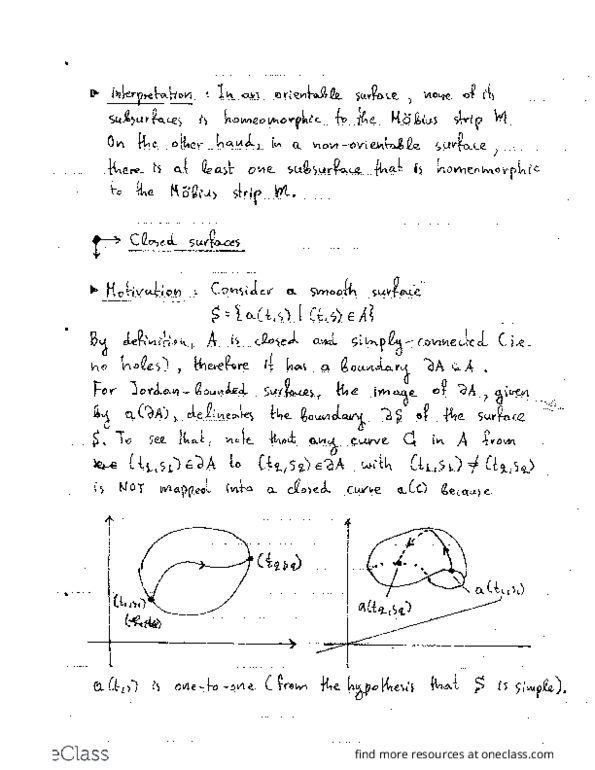 ▶ Interpretation : In an orientable surface, none of its
subsurfaces is homeomorphic to the Möbius strip M.
On the other hand, in a non-orientable surface,
there is at least one subsurface that is homeomorphic
to the Möbius strip M.
Closed surfaces
▶ Motivation : Consider a smooth surface
S = {a(t,s) | (t,s) ∈ A}
By definition, A is closed and simply-connected (i.e.
no holes), therefore it has a boundary ∂A ⊆ A.
For Jordan-bounded surfaces, the image of ∂A, given
by a(∂A), delineates the boundary ∂S of the surface
S. To see that, note that any curve C in A from
(t1,s1) ∈ ∂A to (t2,s2) ∈ ∂A with (t1,s1) ≠ (t2,s2)
is NOT mapped into a closed curve a(C) because
(t2,s2)
(t1,s1)
a(t1,s1)
a(t2,s2)
a(t,s) is one-to-one (from the hypothesis that S is simple).
eClass
find more resources at oneclass.com